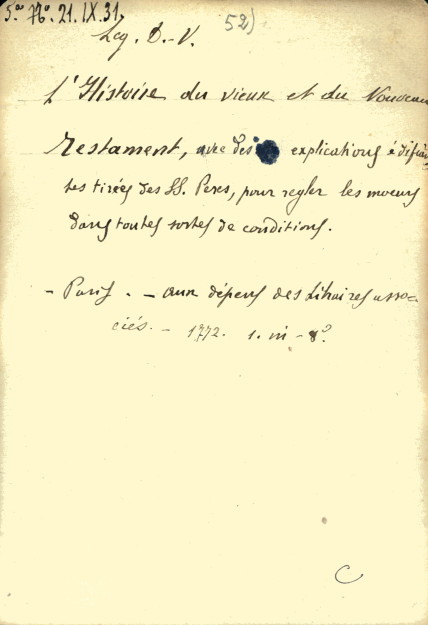 5.º Nº. 21. IX. 31.
52)
Leg. D.-V.
L'Histoire du vieux et du Nouveau
Testament, avec des explications édifian-
tes tirées des SS. Peres, pour regler les moeurs
dans toutes sortes de conditions.
- Paris. - aux dépens des Libraires asso-
ciés. - 1772. 1. in - 8º.
C